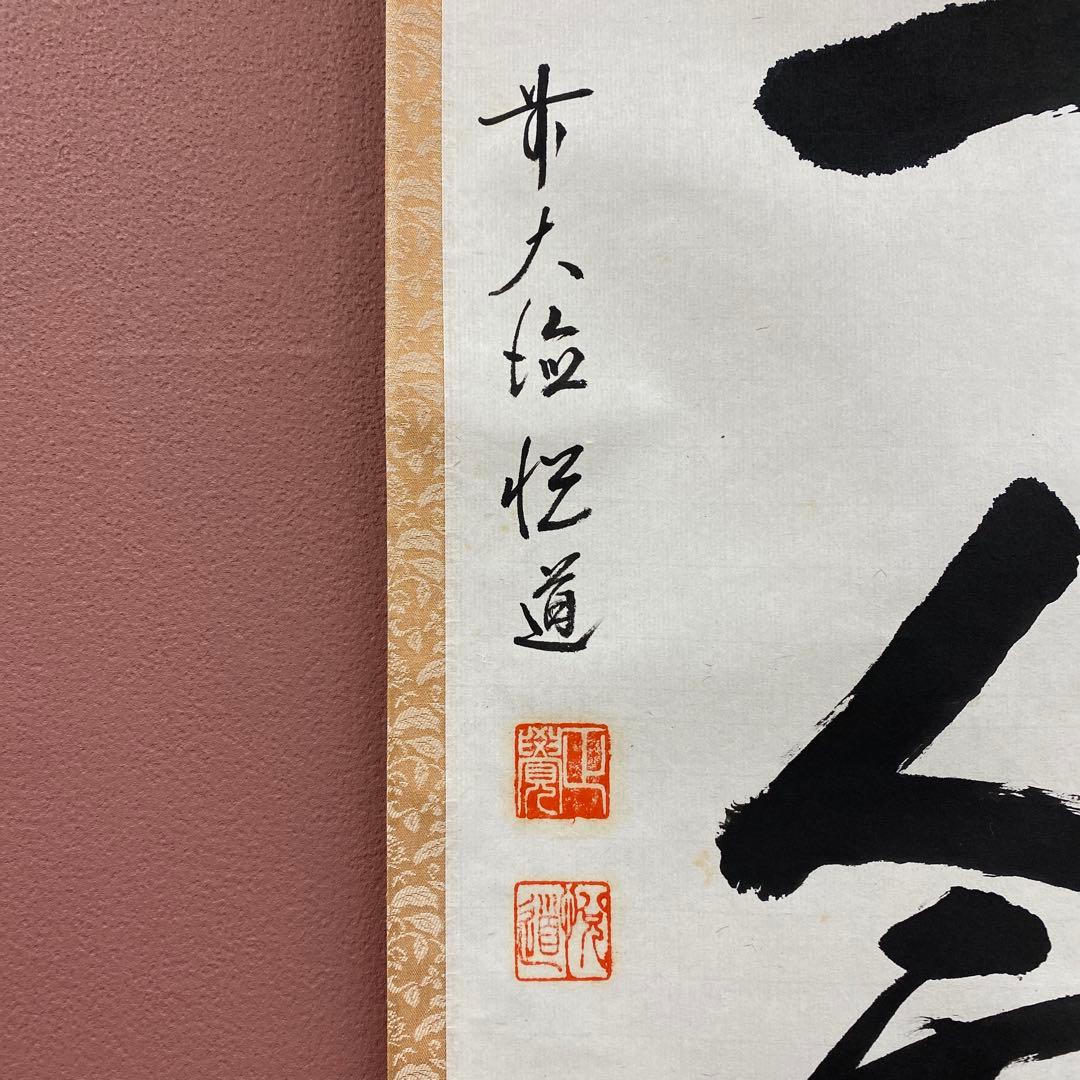 前大徳悦道
正覺
悦道